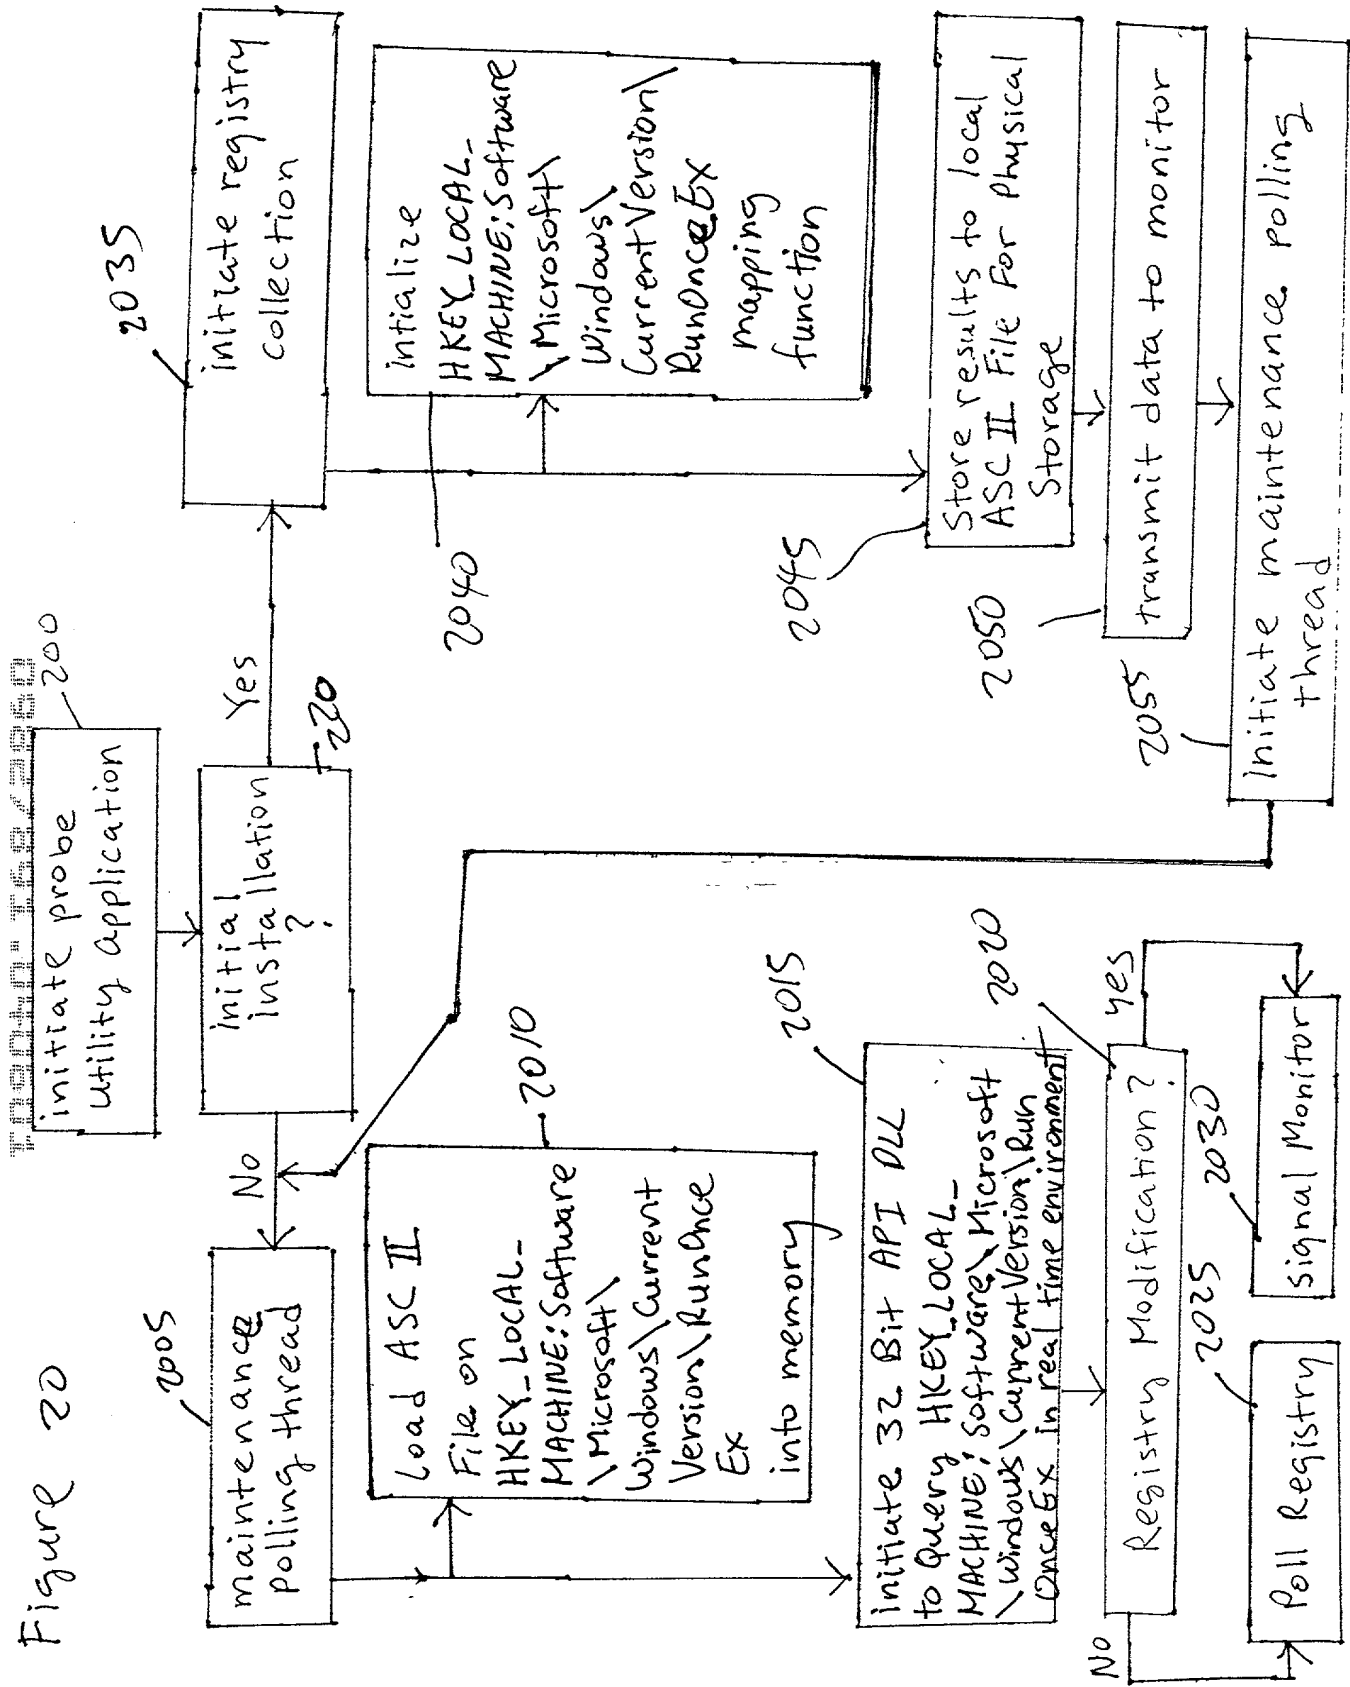 Figure 20
initiate probe
utility application
200
initial
installation
?
220
Yes
No
2005
maintenance
polling thread
2010
Load ASC II
File on
HKEY_LOCAL_
MACHINE:Software
\Microsoft\
Windows\Current
Version\RunOnce
Ex
into memory
2015
initiate 32 Bit API DLL
to Query HKEY_LOCAL_
MACHINE; Software\Microsoft
\Windows\CurrentVersion\Run
OnceEx in real time environment
2020
Registry Modification?
No
yes
2025
Poll Registry
2030
Signal Monitor
2035
initiate registry
collection
2040
intialize
HKEY_LOCAL_
MACHINE:Software
\Microsoft\
Windows\
CurrentVersion\
RunOnceEx
mapping
function
2045
Store results to local
ASC II File For Physical
Storage
2050
transmit data to monitor
2055
Initiate maintenance polling
thread